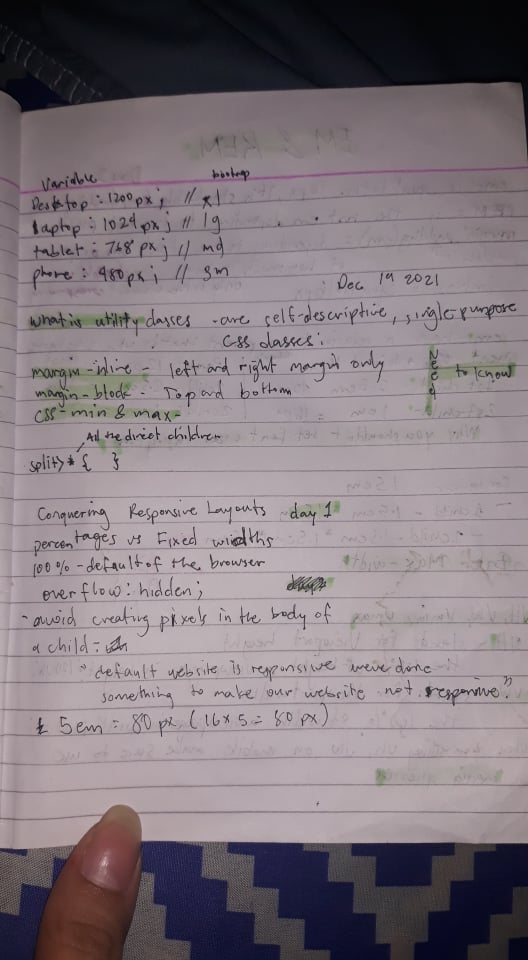 Variable bootrap
Desktop : 1200 px ; // xl
laptop : 1024 px ; // lg
tablet : 768 px ; // md
phone : 480 px ; // sm
Dec 19 2021
what is utility classes - are self-descriptive, single-purpose
css classes :
margin-inline - left and right margin only
margin-block - Top and bottom
need to know
css - min & max -
All the direct children
split > * { }
Conquering Responsive Layouts day 1
percentages vs Fixed widths
100% - default of the browser
overflow : hidden ;
- avoid creating pixels in the body of
a child -
" default website is responsive were done
something to make our website not responsive "
5em = 80 px ( 16 x 5 = 80 px )